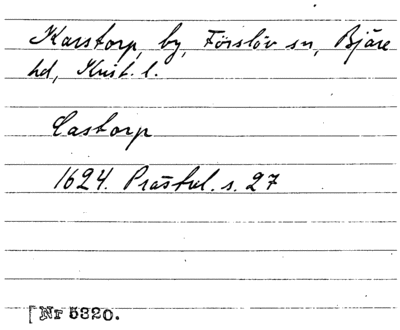 Karstorp, by, Förslöv sn, Bjäre
hd, Krist. l.
Castorp
1624. Prästrel. s. 27
[Nr 5320.